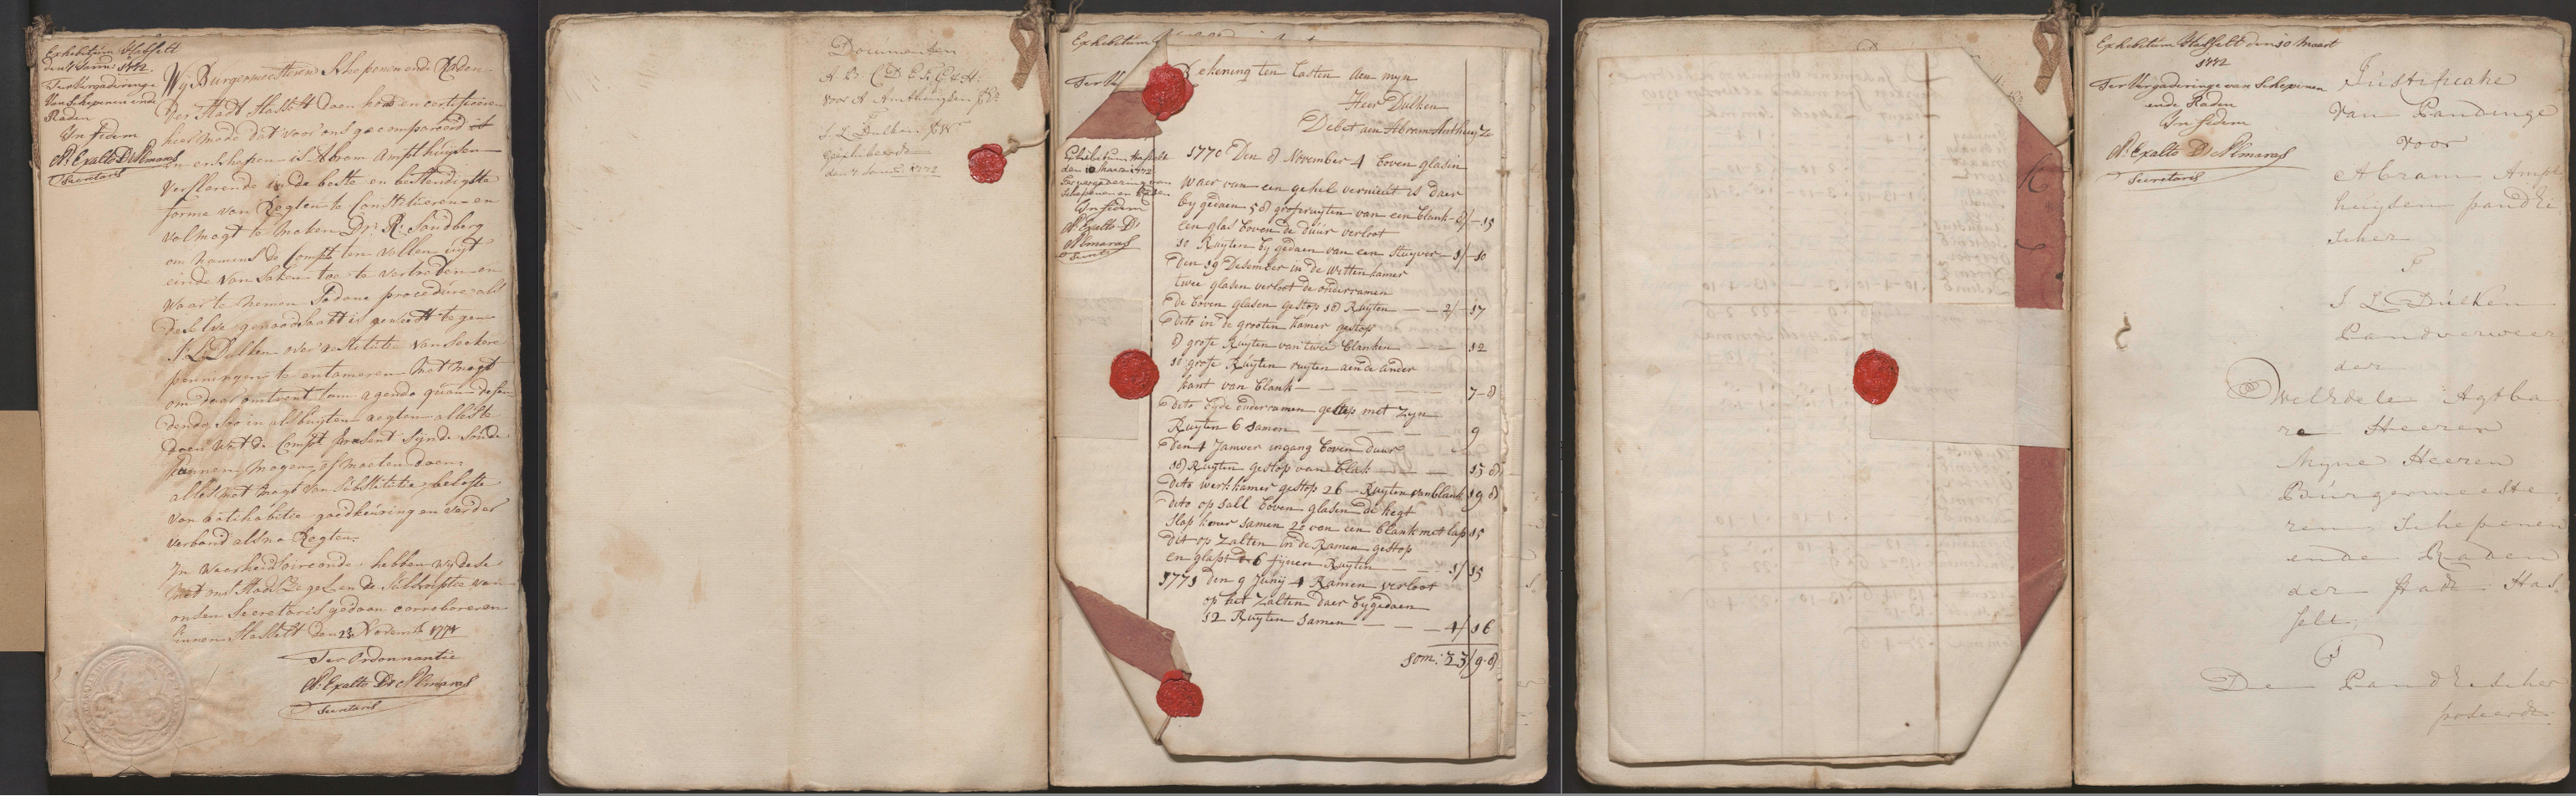 Exhibitum Hasselt
den 7 Janu: 1772.
Ter Vergaderinge
Van Schepenen ende
Raden
In fidem
A: Exalto D'Almaras
Secretaris
Wij Burgermeesteren Schepenen ende Raden
Der Stadt Hasselt doen kond en certificeren
hier mede dat voor ons gecompareerd is
en erschenen is Abram Ampthuijsen
Verklarende in de beste en bestendigste
forme van Regten te Constitueren en
volmagt te maken Dr. R: Sandberg
om namens de Compt ten vollen uijt
einde van saken toe te vertreden en
waar te nemen Sodane procedure als
deselve genoodsaakt is geweest tegen
J: L: Dulken over restitutie van seekere
penningen te entameren Met magt
om daar omtrent tam agendo quam defen
dendo, soo in als buyten regten alles te
doen wat de Compt present sijnde soude
kunnen mogen of moeten doen
alles met magt van substitutie, belofte
van ratihabitie goedkeuring en verder
verband als na Regten.
In waarheids oirconde hebben wij dese
met ons Stads Zegel en de subscriptie van
onsen Secretaris gedaan corroboreren
binnen Hasselt den 23 Novemb 1771
Ter Ordonnantie
A: Exalto D'Almaras
Secretaris
Documenten
A. B. C D E F G & H:
voor A Ampthuijsen
J. L Dulken
Geexhibeerd
den 7 Janu: 1772
Exhibitum
Ter
Exhibitum Hasselt
den 10 Maart 1772
Ter vergadering van
Schepenen en Raden
In fidem
A: Exalto D'
Almaras
Secrets
Rekening ten Lasten Aen myn
Heer Dulken
Debet aen Abram Anthuyse
1770 Den 8 November 4 boven glasin
waer van een gehel vernieut is daer
by gedaen 58 grofruyten van een blank - 8/-15
een glas boven de duur verloot
10 Ruyten by gedaen van een Stuyver - 1/-10
Den 19 Desember in de Witten kamer
twee glasen verloot de onderramen
de boven glasen gestop 18 Ruyten - - 2/-17
dito in de grooten kamer gestop
8 grofe Ruyten van twee blanken - - 12
10 grofe Ruyten ruyten aen de ander
kant van blank - - - 7-8
dito byde onderramen gestop met zyn
Ruyten 6 samen - - - 9
Den 4 Januer ingang boven duur
18 Ruyten gestop van blak - - - 15 8
dito werkkamer gestop 26 - Ruyten van blank 19 8
dito op sall boven glasen de hegt
Slap kaver samen 20 van een blank met lap 15
Dit op Zalten in de Ramen gestop
en glast de 6 fijnen Ruyten - - 1/15
1771 Den 9 Junij 4 Ramen verloot
op het Zalten daer bygedaen
12 Ruyten samen - - - 4/16
Som: 23/9-8
Exhibitum Hasselt den 10 Maart
1772
Ter Vergaderinge van Schepenen
ende Raden
In fidem
A: Exalto D'Almaras
Secretaris
Justificatie
Van Pandinge
voor
Abram Ampt
huysen pandEi
scher
J L Dulken
Pandverweer
der
WelEdele Agtba
re Heeren
Myne Heeren
Burgermeeste
ren, Schepenen
ende Raden
der stadt Has
selt,
De PandEischer
poseerde